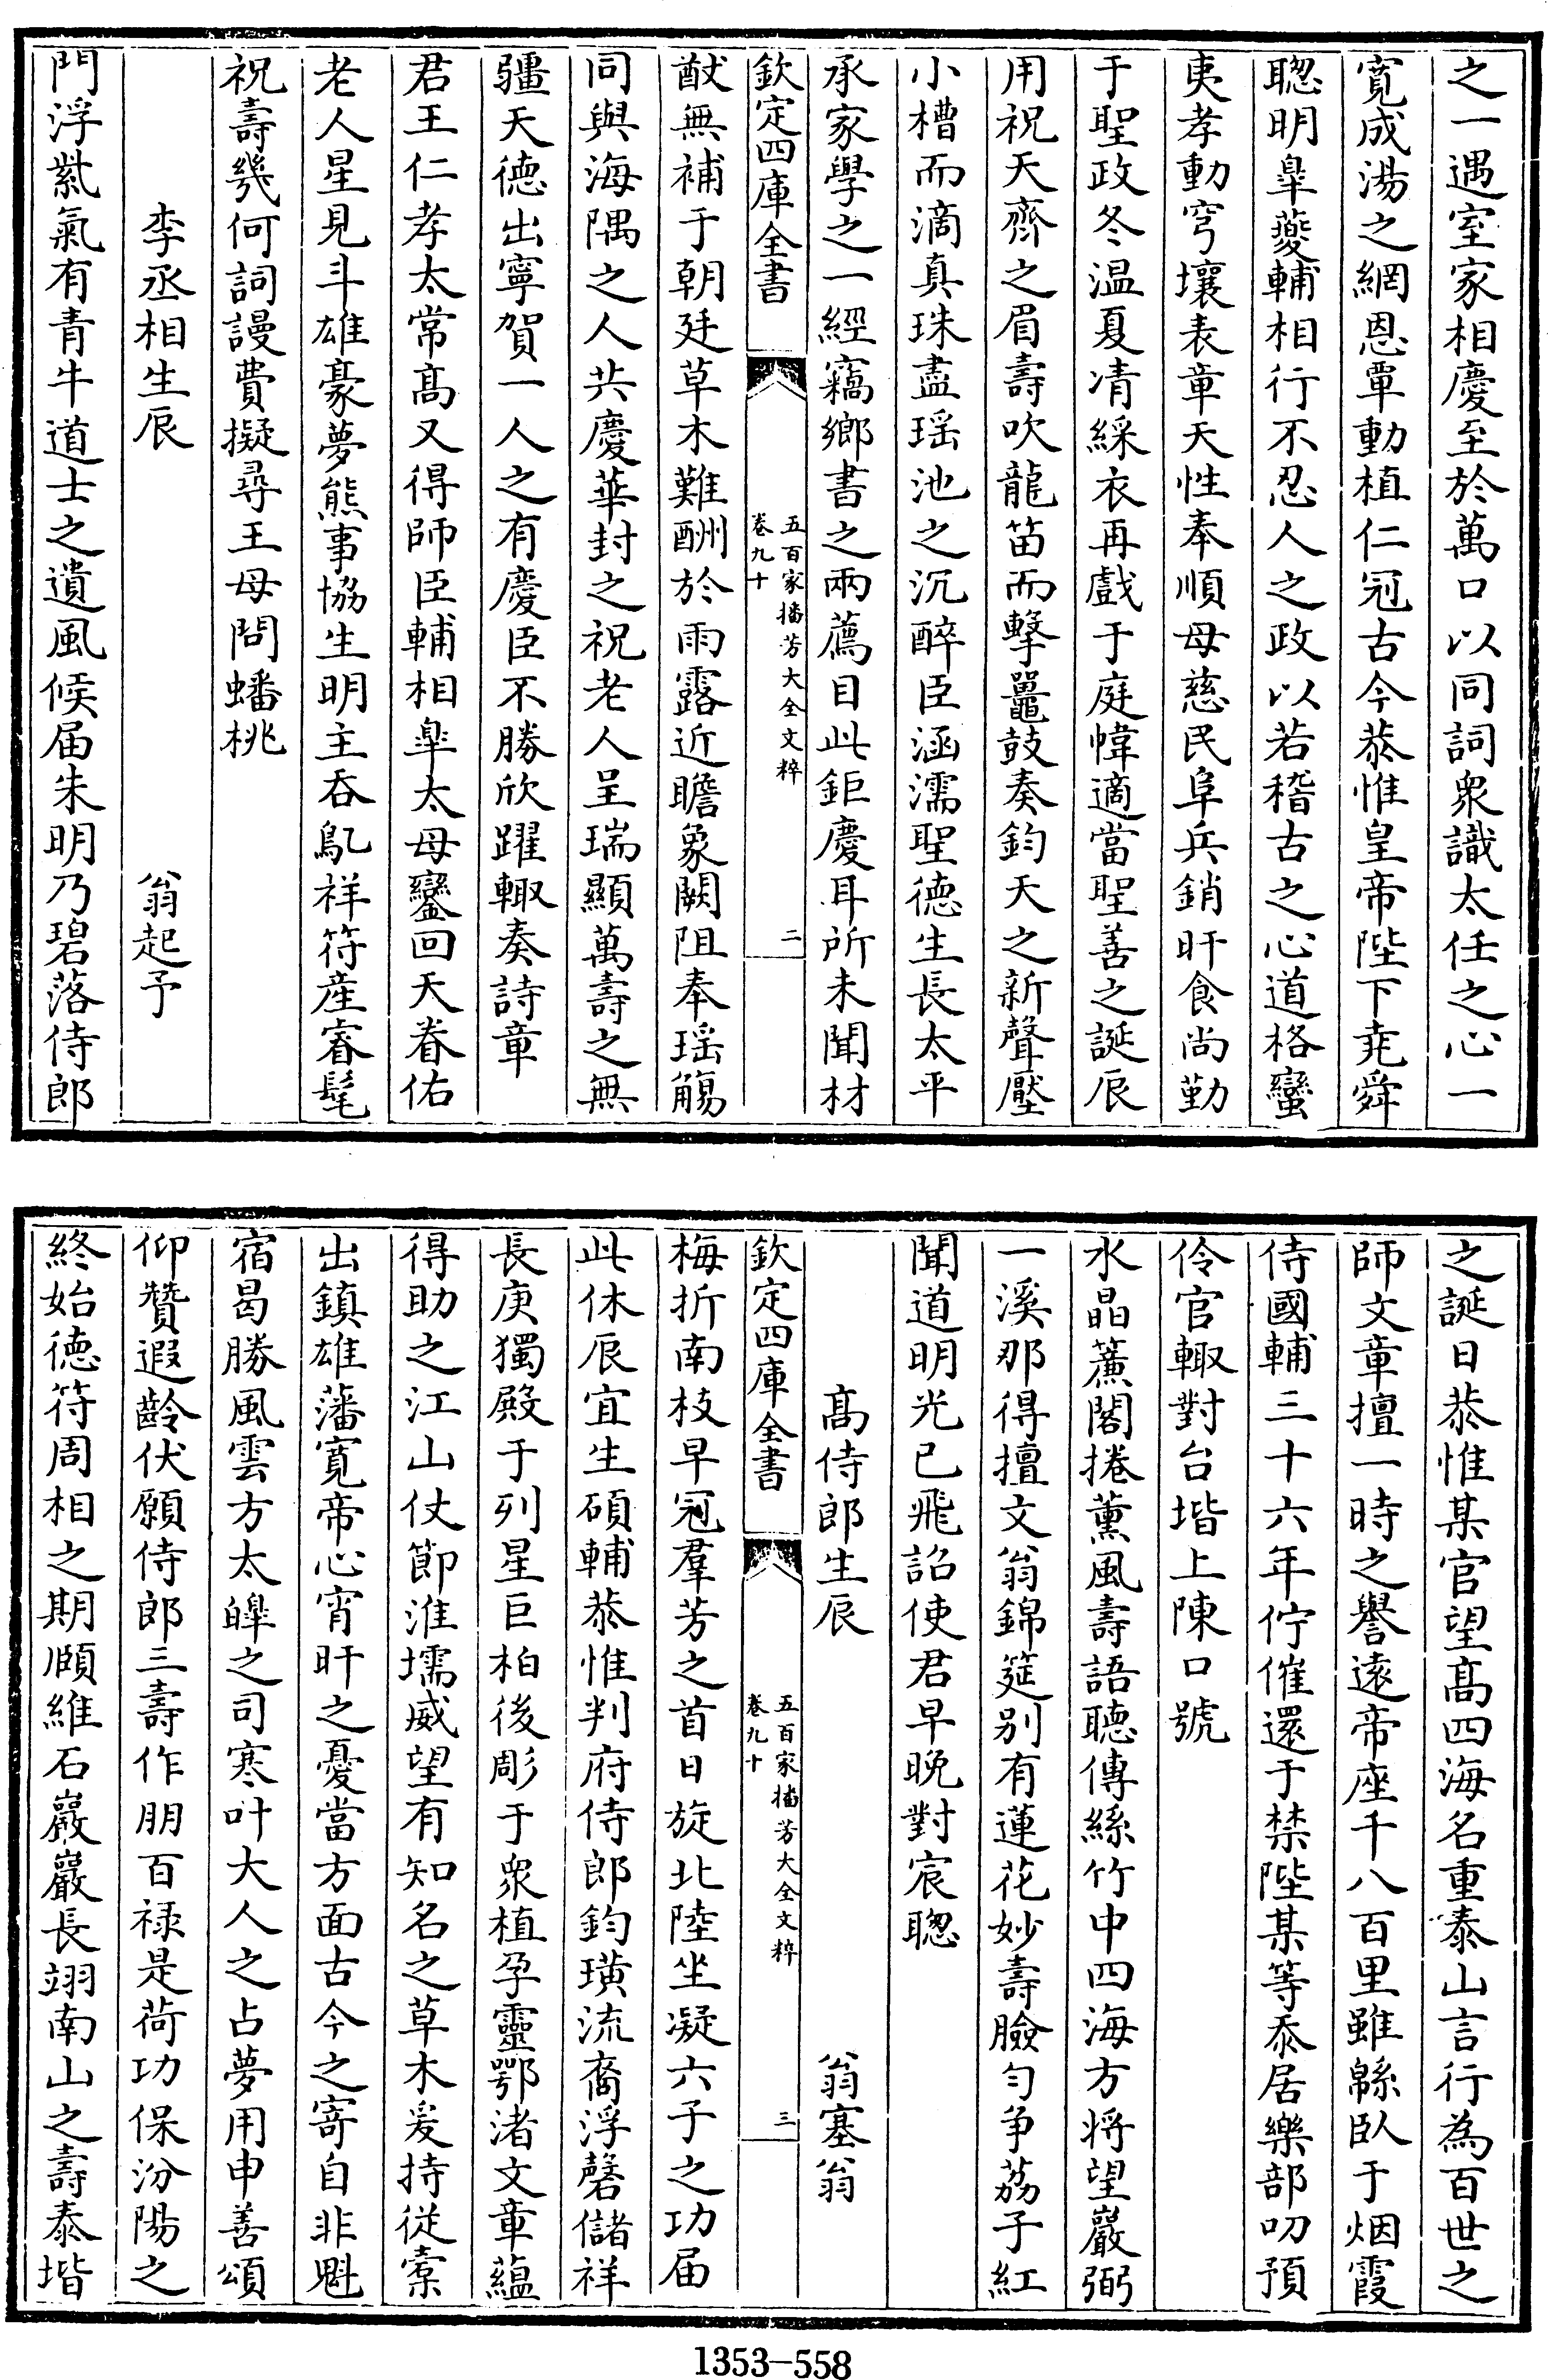 之一遇室家相慶至於萬口以同詞衆識太任之心一
寛成湯之網恩覃動植仁冠古今恭惟皇帝陛下堯舜
聰明臯夔輔相行不忍人之政以若稽古之心道格蠻
夷孝動穹壤表章天性奉順母慈民阜兵銷旰食尚勤
于聖政冬温夏凊綵衣再戲于庭幃適當聖善之誕辰
用祝天齊之眉壽吹龍笛而擊鼉鼓奏鈞天之新聲壓
小槽而滴真珠盡瑶池之沉醉臣涵濡聖德生長太平
承家學之一經竊鄉書之兩薦目此鉅慶耳所未聞材
欽定四庫全書
五百家播芳大全文粹
卷九十
二
猷無補于朝廷草木難酬於雨露近瞻象闕阻奉瑶觴
同與海隅之人共慶華封之祝老人呈瑞顯萬壽之無
疆天德出寧賀一人之有慶臣不勝欣躍輙奏詩章
君王仁孝太常髙又得師臣輔相臯太母鑾回天眷佑
老人星見斗雄豪夢熊事協生明主呑鳦祥符産睿髦
祝壽幾何詞謾費擬尋王母問蟠桃
李丞相生辰
翁起予
門浮紫氣有青牛道士之遺風候届朱明乃碧落侍郎
之誕日恭惟某官望髙四海名重泰山言行為百世之
師文章擅一時之譽遠帝座千八百里雖緜臥于烟霞
侍國輔三十六年佇催還于禁陛某等忝居樂部叨預
伶官輙對台堦上陳口號
水晶簾閣捲薫風壽語聽傳絲竹中四海方将望巖弼
一溪那得擅文翁錦筵别有蓮花妙壽臉勻争荔子紅
聞道明光已飛詔使君早晚對宸聰
髙侍郎生辰
翁塞翁
欽定四庫全書
五百家播芳大全文粹
卷九十
三
梅折南枝早冠羣芳之首日旋北陸坐凝六子之功届
此休辰宜生碩輔恭惟判府侍郎鈞璜流裔浮磬儲祥
長庚獨殿于列星巨柏後彫于衆植孕靈鄂渚文章藴
得助之江山仗節淮壖威望有知名之草木爰持從橐
出鎮雄藩寛帝心宵旰之憂當方面古今之寄自非魁
宿曷勝風雲方太皥之司寒叶大人之占夢用申善頌
仰贊遐齡伏願侍郎三壽作朋百禄是荷功保汾陽之
終始德符周相之期頤維石巖巖長翊南山之壽泰堦
1353-558